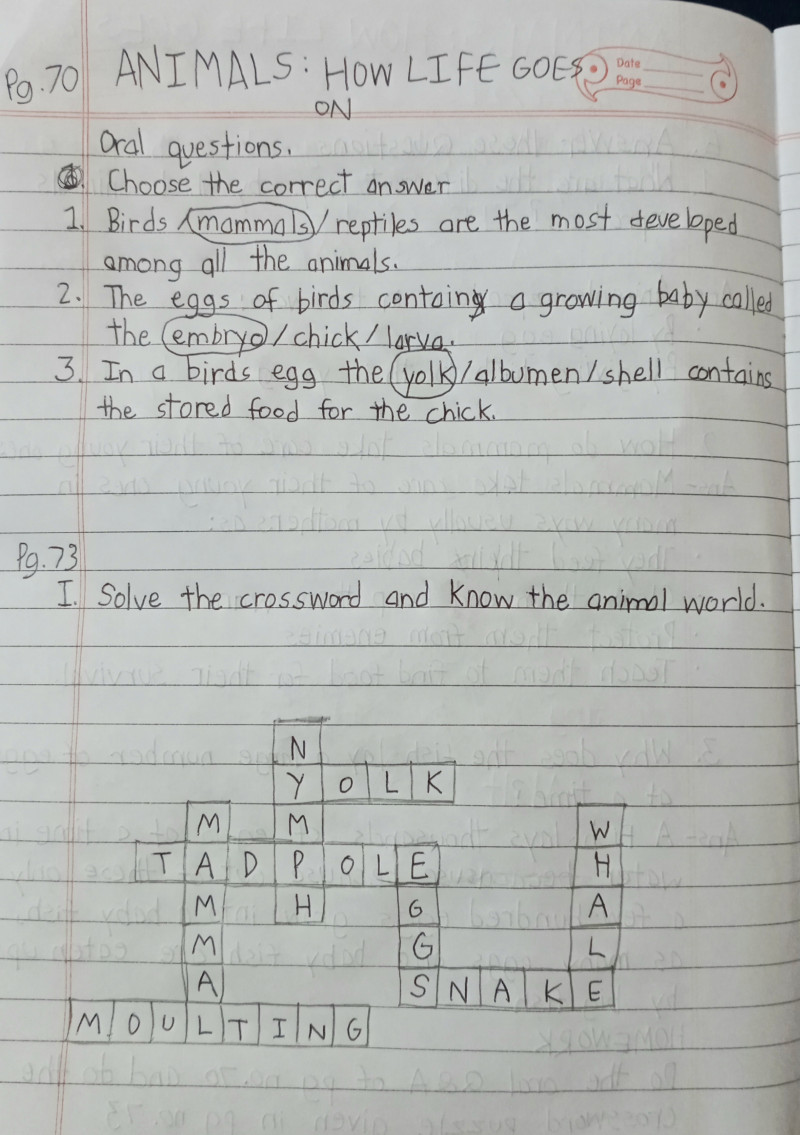 Pg. 70 ANIMALS: HOW LIFE GOES
ON
Date
Page
Oral questions.
Choose the correct answer
1. Birds /mammals/ reptiles are the most developed
among all the animals.
2. The eggs of birds contain a growing baby called
the embryo/chick/larva.
3. In a birds egg the yolk/albumen/shell contains
the stored food for the chick.
Pg. 73
I. Solve the crossword and know the animal world.
N
YOLK
M M W
TADPOLE H
M H G A
M G L
A SNAKE
MOULTING